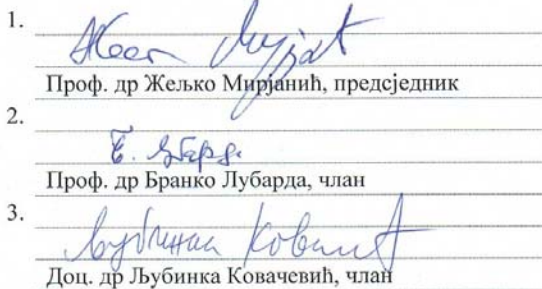 1.
Проф. др Жељко Мирјанић, предсједник
2.
Проф. др Бранко Лубарда, члан
3.
Доц. др Љубинка Ковачевић, члан